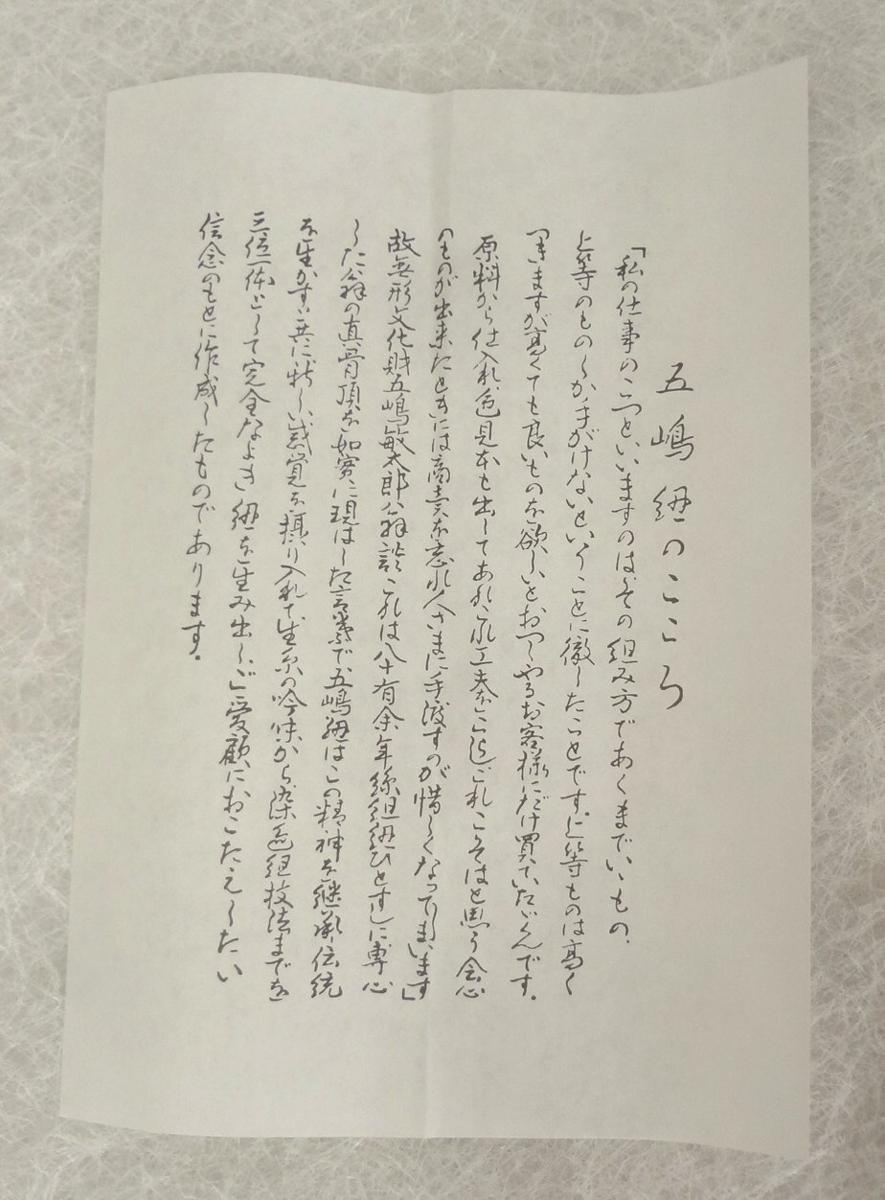 五嶋紐のこころ
「私の仕事のこつといいますのは、その組み方であくまでいいもの、
上等のものしか手がけないということに徹したことです。上等ものは高く
つきますが高くても良いものを欲しいとおっしゃるお客様にだけ買ていただくんです。
原料から仕入れ、色見本も出してあれこれ工夫をこらしこれこそはと思う会心
のものが出来たときには商売を忘れ人さまに手渡すのが惜しくなってしまいます」
故無形文化財五嶋敏太郎翁談これは八十有余年絲組紐ひとすじに専心
した翁の真骨頂を如実に現はした言葉で、五嶋紐はこの精神を継承、伝統
を生かすと共に新しい感覚を摂り入れて生糸の吟味から染色組技法までを
三位一体として完全なよき紐を生み出しご愛顧におこたえしたい
信念のもとに作成したものであります。